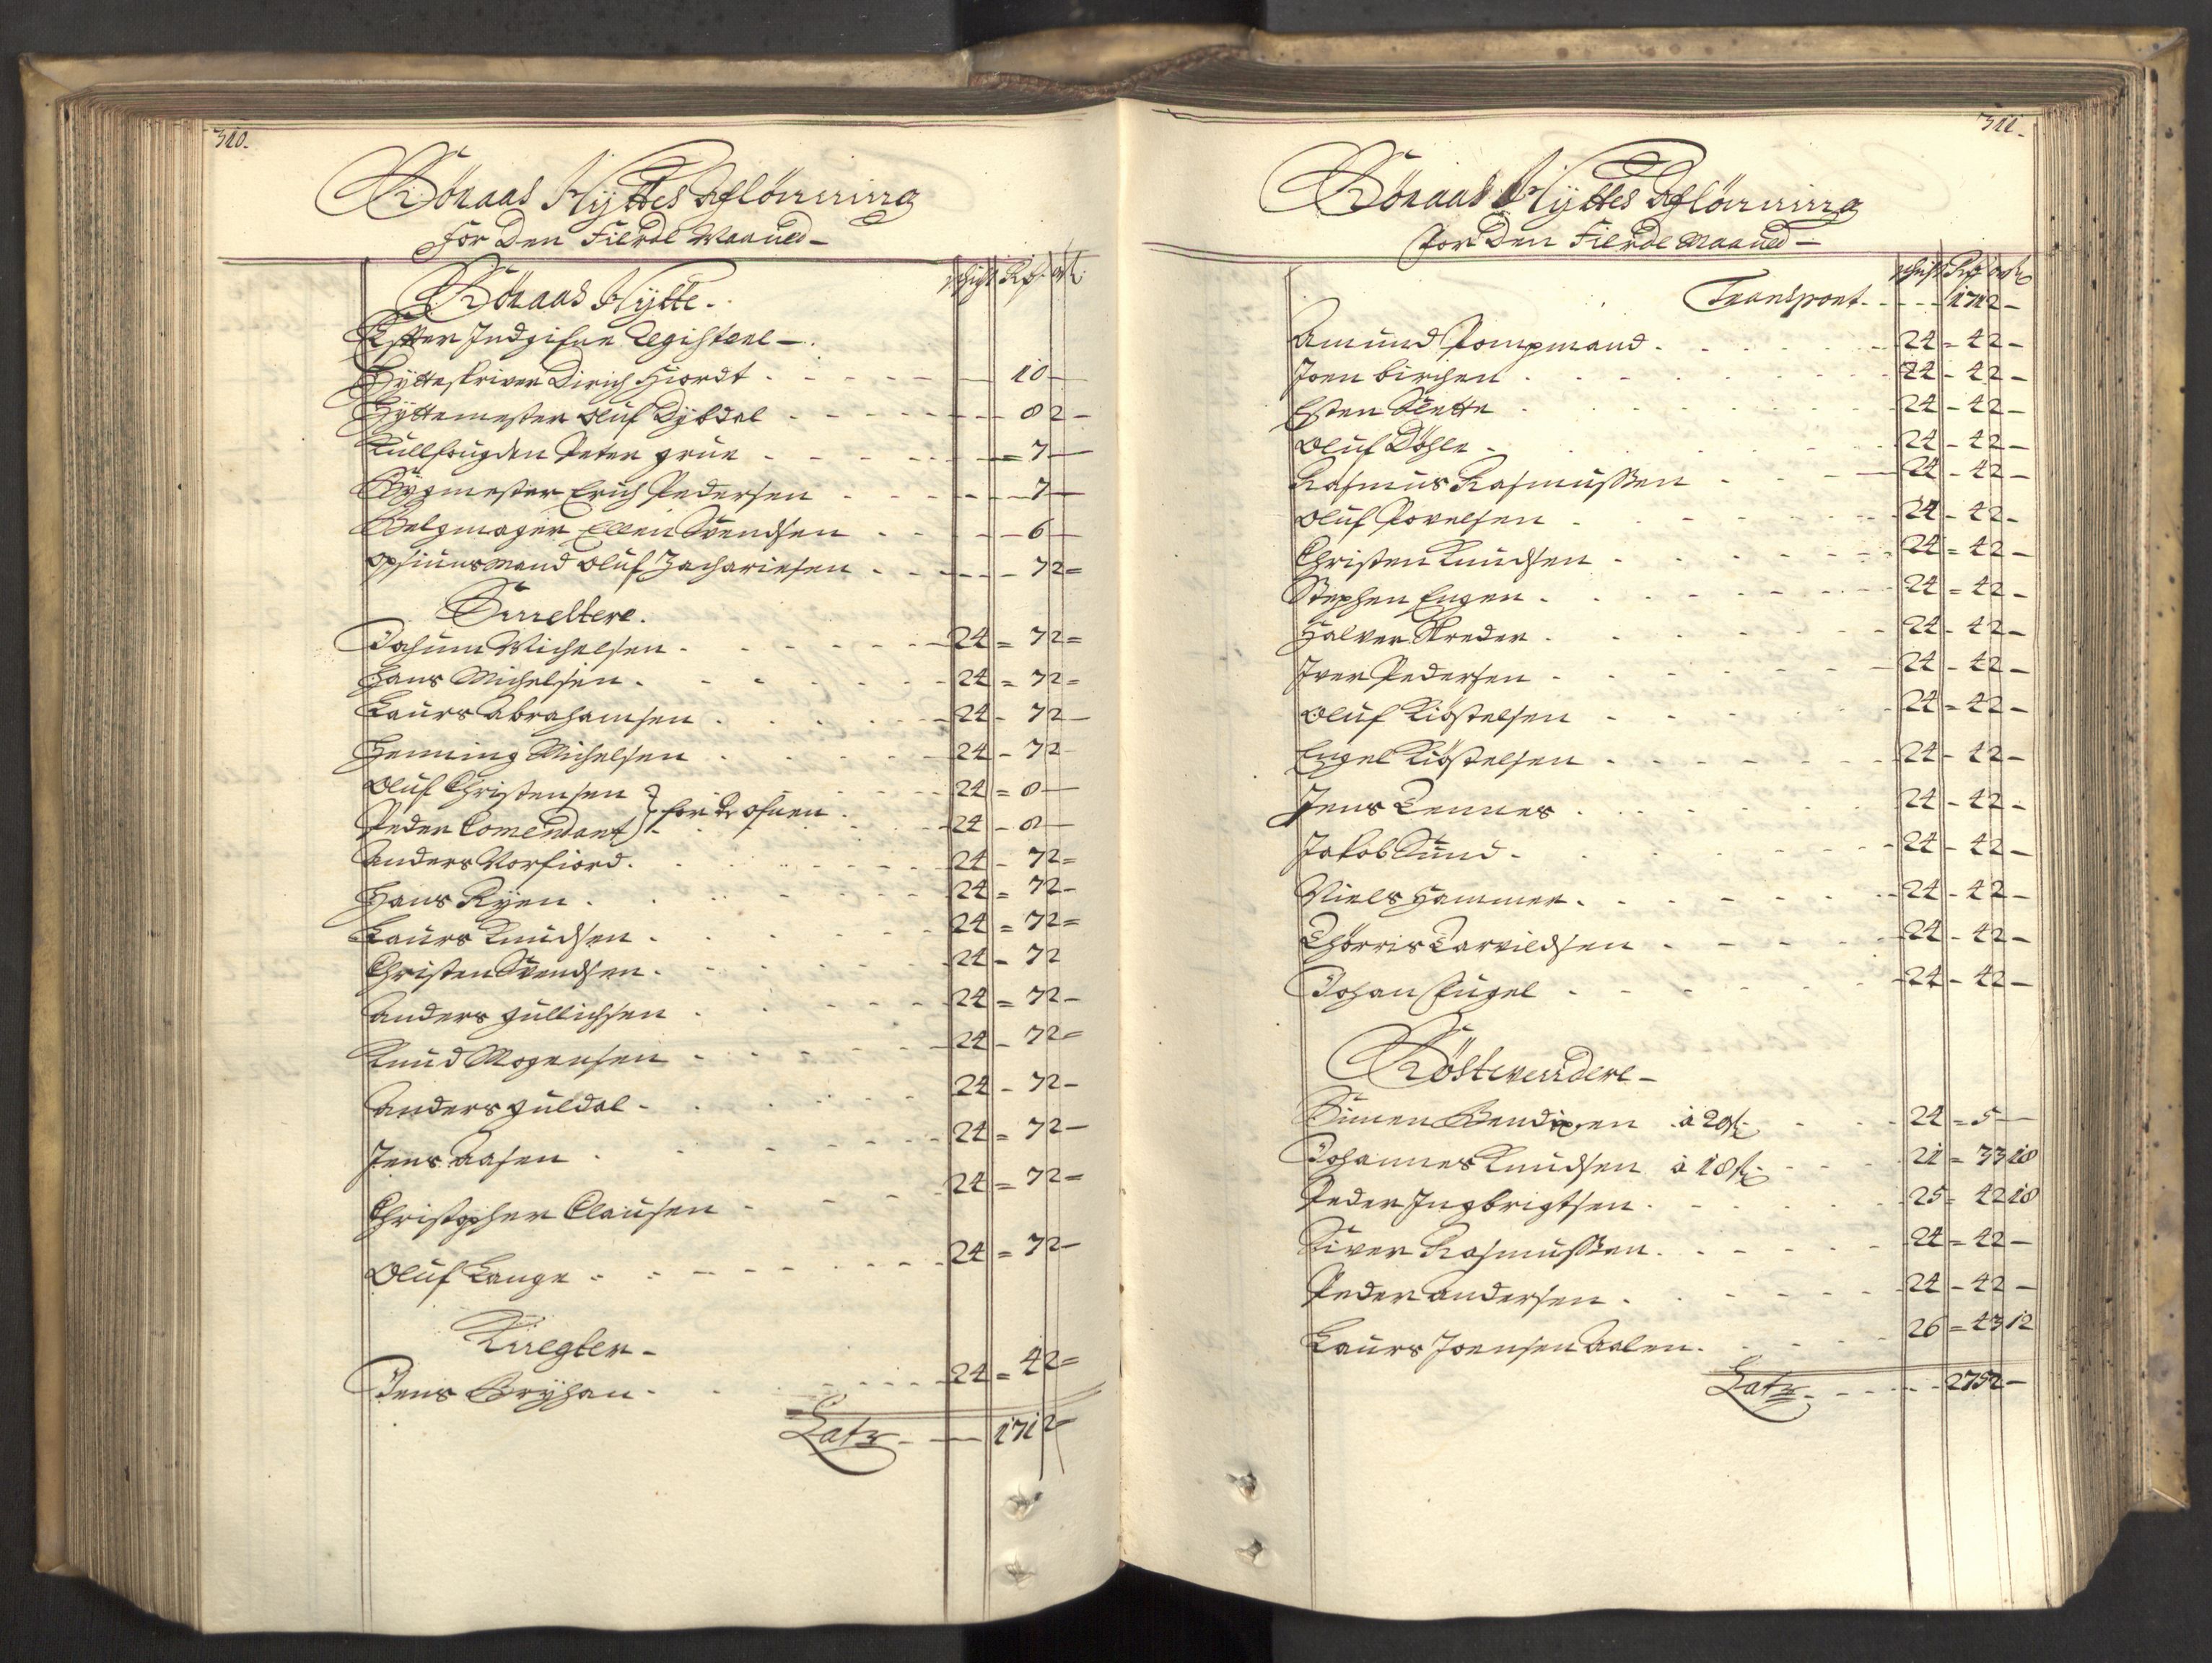 310.
Röraas Hyttes Aflönning
For Den Fierde Maaned -
Röraas Hytte.
Efter Indgifne Register -
Hytteskriver Dirich Hiordt - 10 -
Hyttemester Oluf Dybdal - 8 2 -
Kullfougden Peter grüe - = 7 -
Bygmester Erich Pedersen - 7 -
Belgmager Ellen Svendsen - 6 -
opsiunsmand Oluf Zachariesen - 7 2 =
Smeltere.
Jochum Michelsen - 24 = 7 2 =
Hans Michelsen - 24 = 7 2 =
Laurs Abrahamsen - 24 - 7 2 -
Henning Michelsen - 24 - 7 2 -
Oluf Christensen 24 = 8 -
Peder Comendant } for Dr ofnen 24 - 8 -
Anders Norfiord - 24 - 7 2 =
Hans Ryen - 24 = 7 2 -
Laurs Knudsen - 24 = 7 2 =
Christen Svendsen - 24 - 7 2
Anders Gullichsen - 24 = 7 2 -
Knud Mogensen - 24 - 7 2 =
Anders Guldal - 24 - 7 2 -
Jens Aasen - 24 = 7 2 -
Christopher Clausen - 24 = 7 2 =
Oluf Lange - 24 = 7 2 -
Knegter -
Jens Bryhan - 24 = 4 2 =
Lats - 171 2 -
311.
Röraas Hyttes Aflönning
for Den Fierde Maaned -
Transport - 171 2 -
Amund Pompmand - 24 = 4 2 -
Joen birchen - 24 - 4 2 -
Esten Slette - 24 - 4 2 -
Oluf Döhle - 24 - 4 2 -
Rasmus Rasmussen - 24 - 4 2 -
Oluf Povelsen - 24 - 4 2 -
Christen Knudsen - 24 = 4 2 -
Stephen Engen - 24 = 4 2 -
Halver Skreder - 24 - 4 2 -
Iver Pedersen - 24 - 4 2 -
Oluf Kiöstelsen - 24 = 4 2 -
Engel Kiöstelsen - 24 - 4 2 -
Jens Tennes - 24 - 4 2 -
Jakob Sund - 24 - 4 2 -
Niels Hammer - 24 - 4 2 -
Thorris Tarvildsen - 24 - 4 2 -
Johan Fugel - 24 - 4 2 -
Röstevendere -
Simen Bendixen à 20 s - 24 = 5 -
Johannes Knudsen à 18 s - 21 = 3 3 18
Peder Ingbrigtsen - 25 = 4 2 18
Siver Rasmussen - 24 = 4 2 -
Peder Andersen - 24 - 4 2 -
Laurs Joensen Aalen - 26 = 4 3 12
Lats - 275 2 -